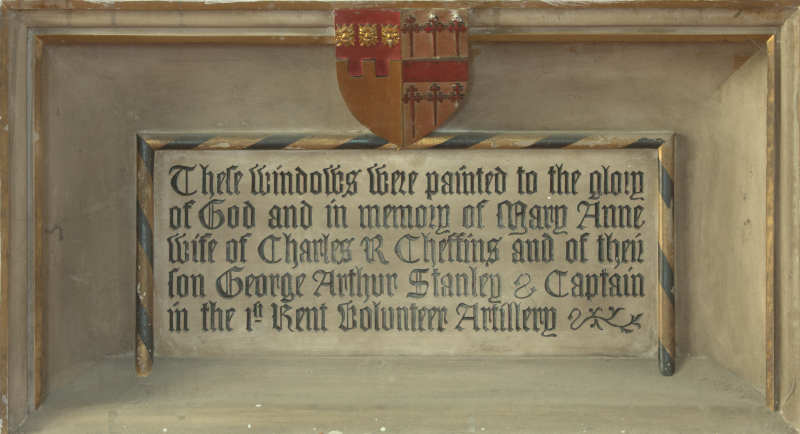 These windows were painted to the glory
of God and in memory of Mary Anne
wife of Charles R Cheffins and of their
son George Arthur Stanley & Captain
in the 1st Kent Volunteer Artillery